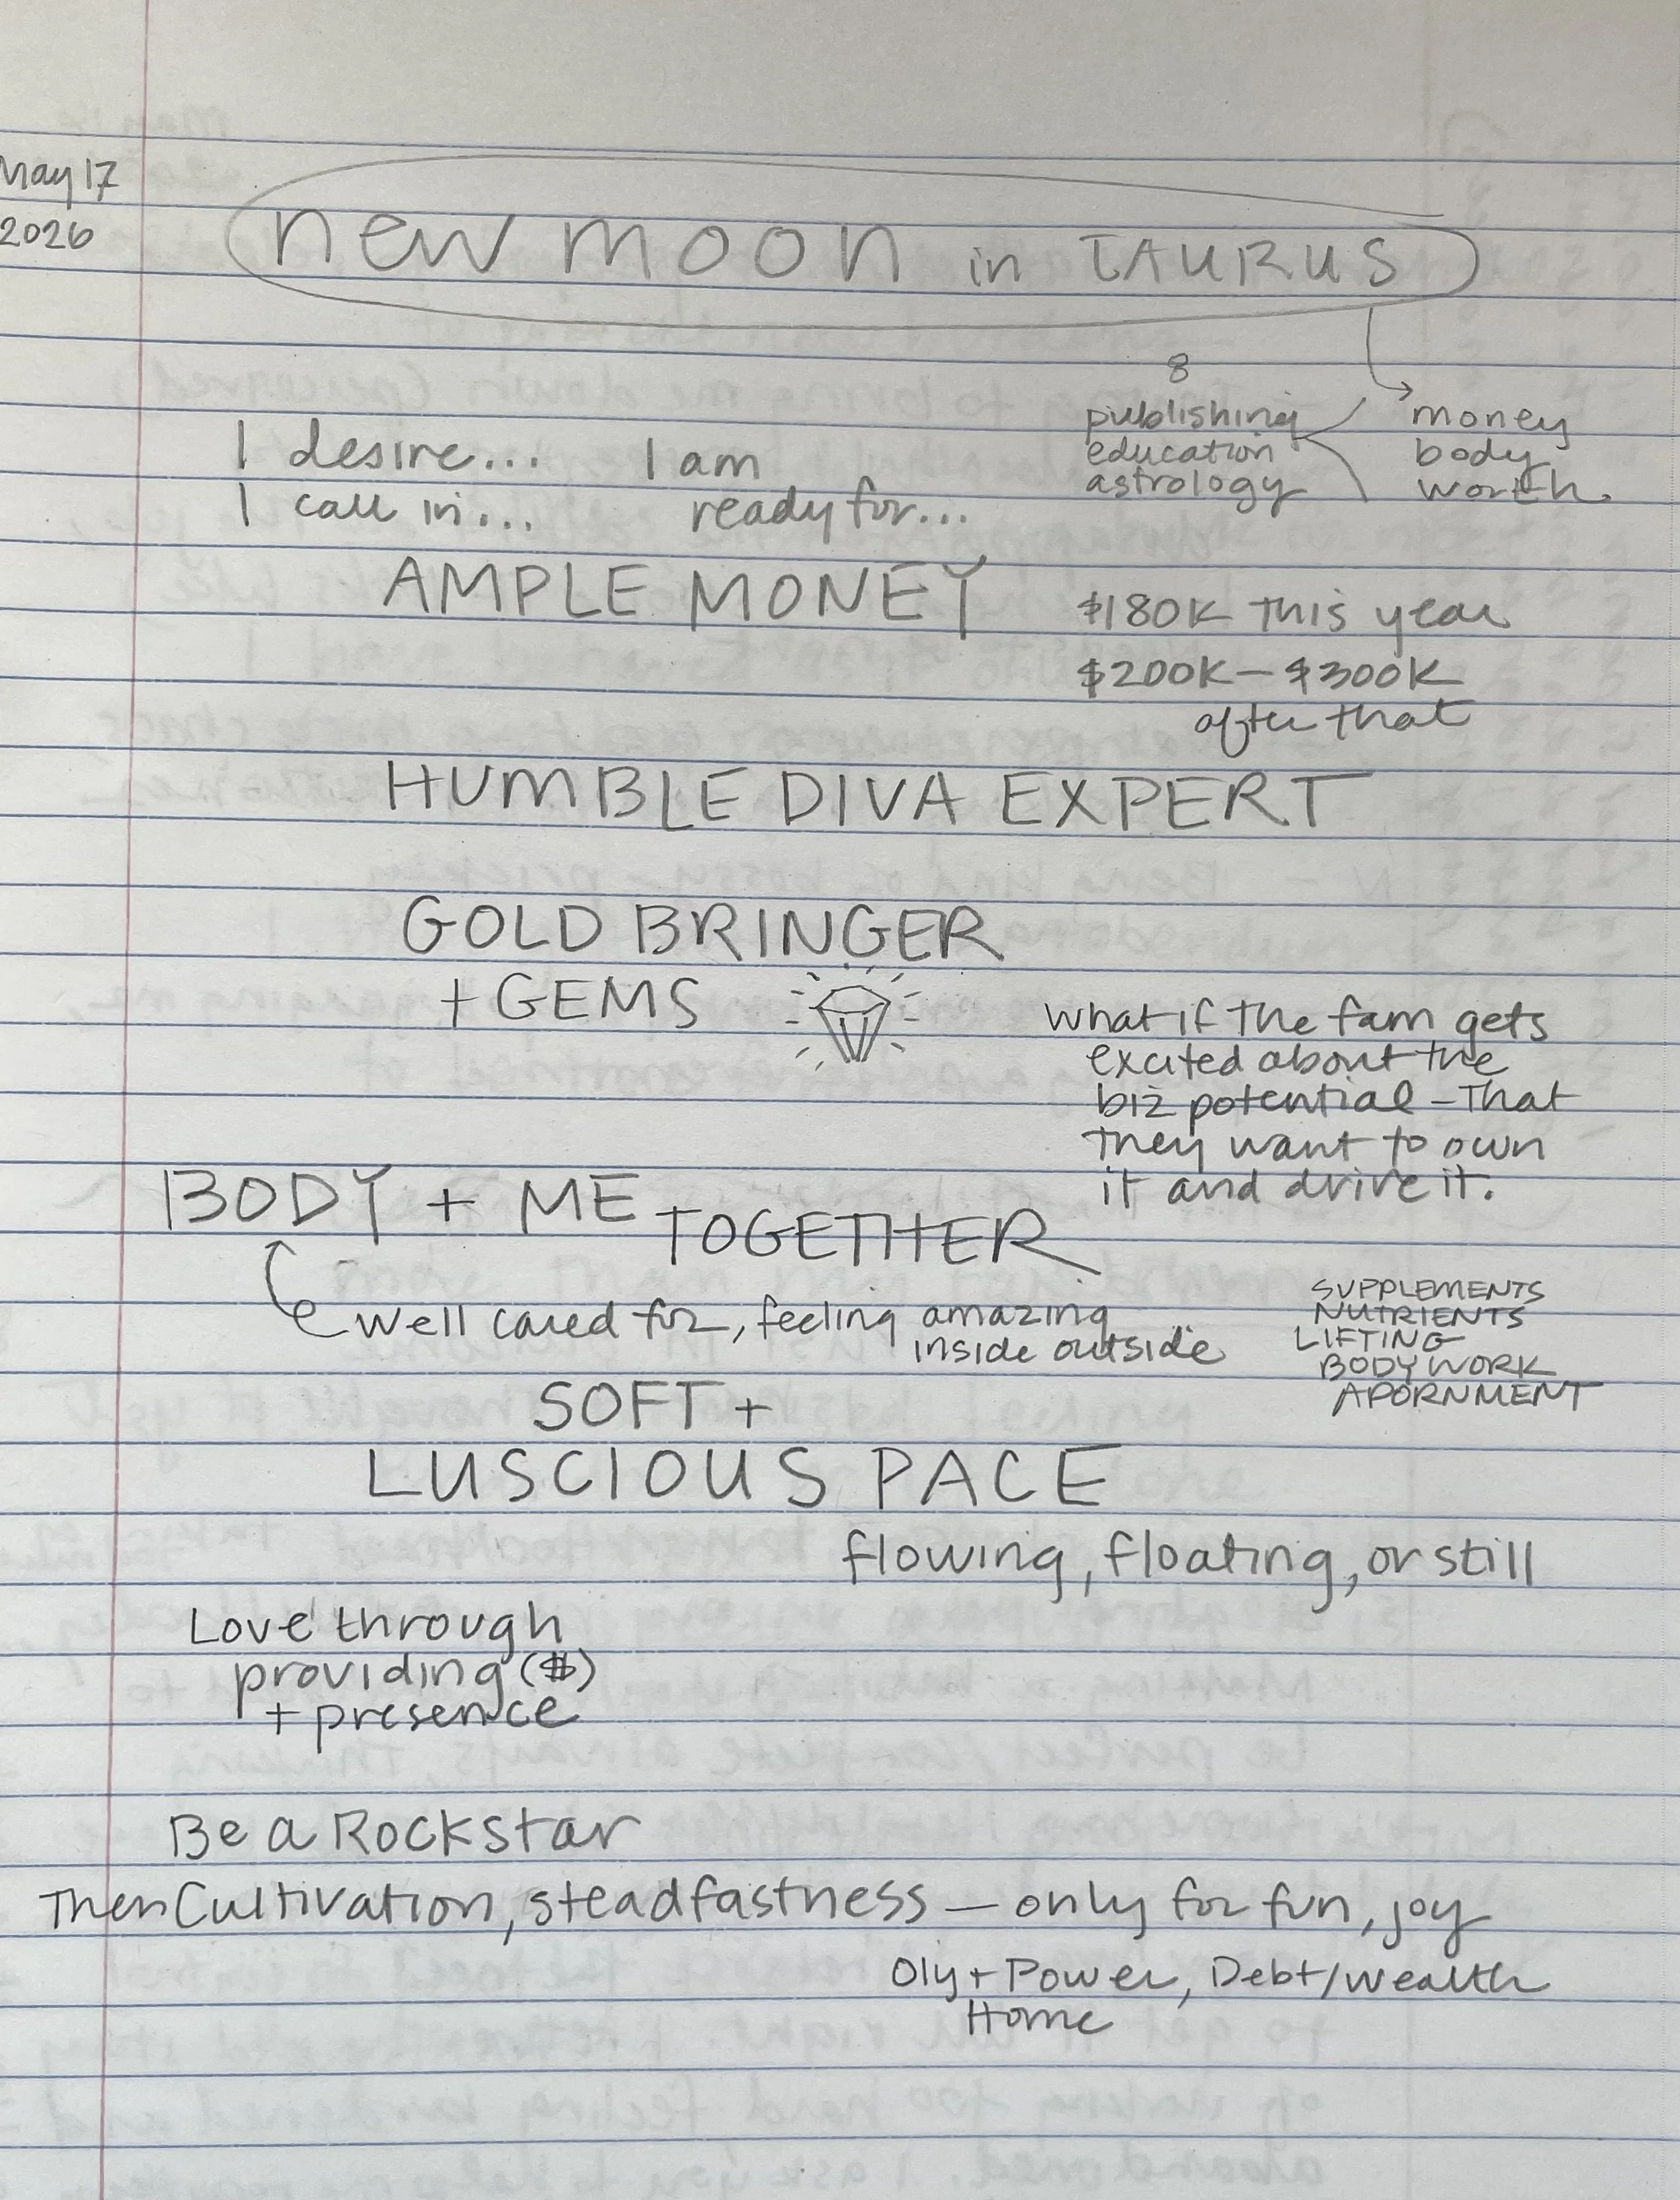 May 17
2026
new moon in TAURUS
8
publishing
education
astrology
money
body
worth.
I desire...
I call in...
I am
ready for...
AMPLE MONEY
$180K this year
$200K – $300K
after that
HUMBLE DIVA EXPERT
GOLD BRINGER
+ GEMS
what if the fam gets
excited about the
biz potential – that
they want to own
it and drive it.
BODY + ME TOGETHER
well cared for, feeling amazing
inside outside
SUPPLEMENTS
NUTRIENTS
LIFTING
BODYWORK
ADORNMENT
SOFT +
LUSCIOUS PACE
flowing, floating, or still
Love through
providing ($)
+ presence
Be a Rockstar
Then Cultivation, steadfastness – only for fun, joy
Oly + Power, Debt/wealth
Home